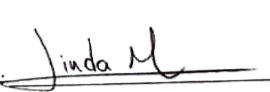 Linda M